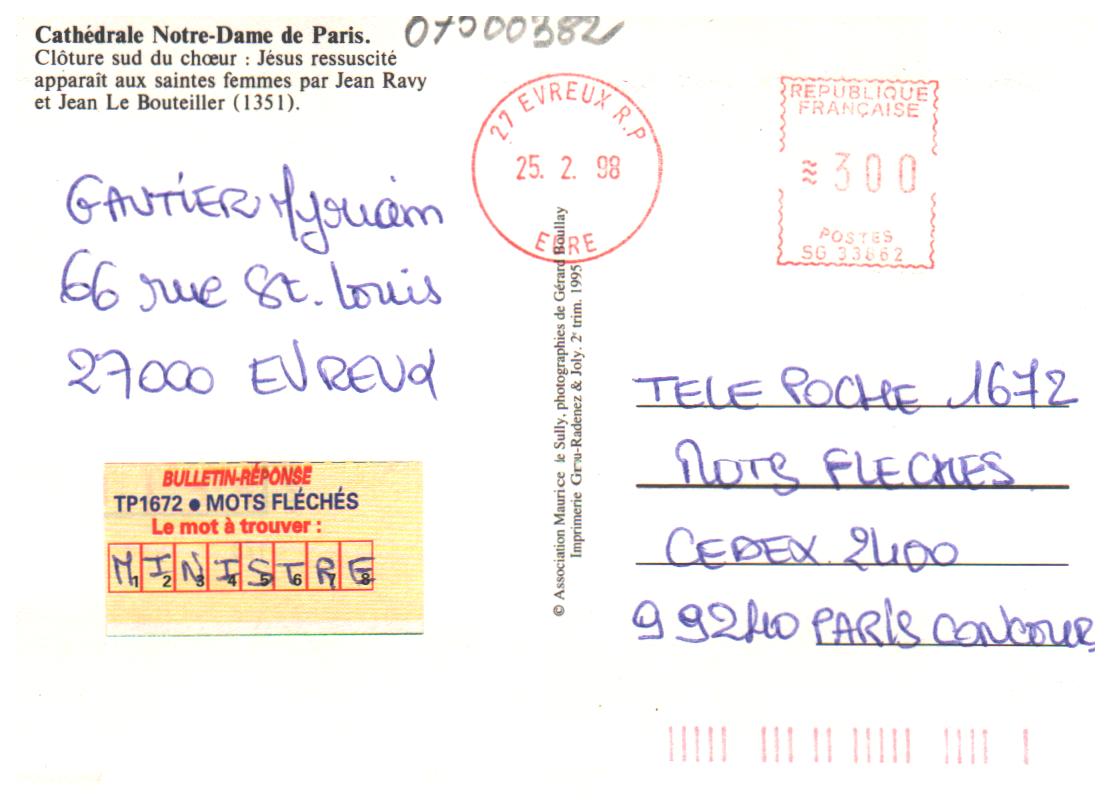 07500382
Cathédrale Notre-Dame de Paris.
Clôture sud du chœur : Jésus ressuscité
apparaît aux saintes femmes par Jean Ravy
et Jean Le Bouteiller (1351).
27 EVREUX R.P
25. 2. 98
EURE
REPUBLIQUE
FRANÇAISE
300
POSTES
SG 33862
GAUTIER Myriam
66 rue St. Louis
27000 EVREUX
BULLETIN-RÉPONSE
TP1672 ● MOTS FLÉCHÉS
Le mot à trouver :
MINISTRE
1 2 3 4 5 6 7 8
© Association Maurice de Sully, photographies de Gérard Boullay
Imprimerie Grou-Radenez & Joly. 2e trim. 1995
TELE POCHE 1672
MOTS FLECHES
CEDEX 2400
99240 PARIS CONCOUR